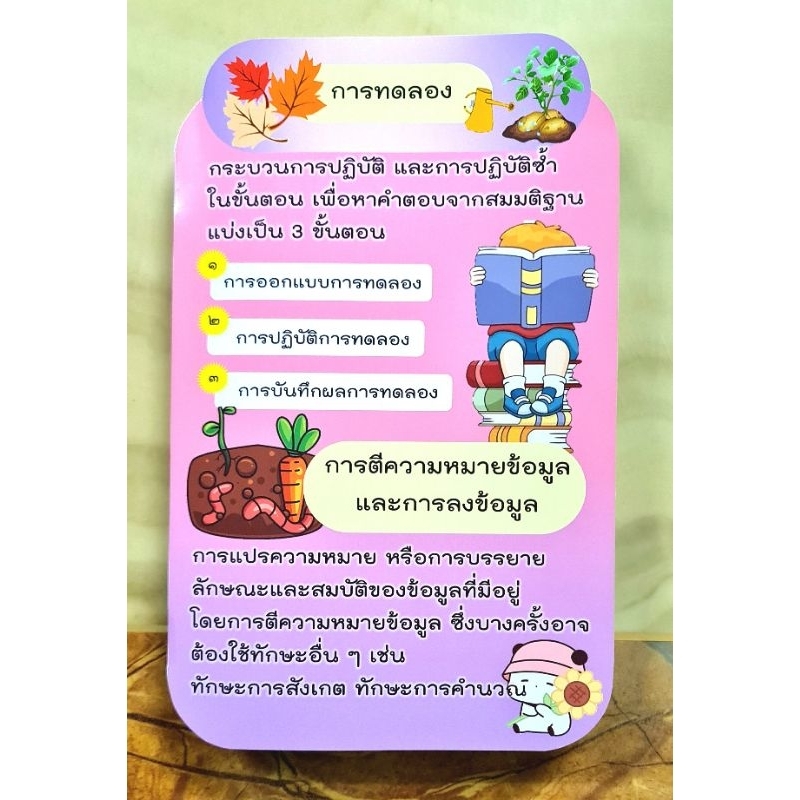 การทดลอง
กระบวนการปฏิบัติ และการปฏิบัติซ้ำ
ในขั้นตอน เพื่อหาคำตอบจากสมมติฐาน
แบ่งเป็น 3 ขั้นตอน
๑
การออกแบบการทดลอง
๒
การปฏิบัติการทดลอง
๓
การบันทึกผลการทดลอง
การตีความหมายข้อมูล
และการลงข้อมูล
การแปรความหมาย หรือการบรรยาย
ลักษณะและสมบัติของข้อมูลที่มีอยู่
โดยการตีความหมายข้อมูล ซึ่งบางครั้งอาจ
ต้องใช้ทักษะอื่น ๆ เช่น
ทักษะการสังเกต ทักษะการคำนวณ